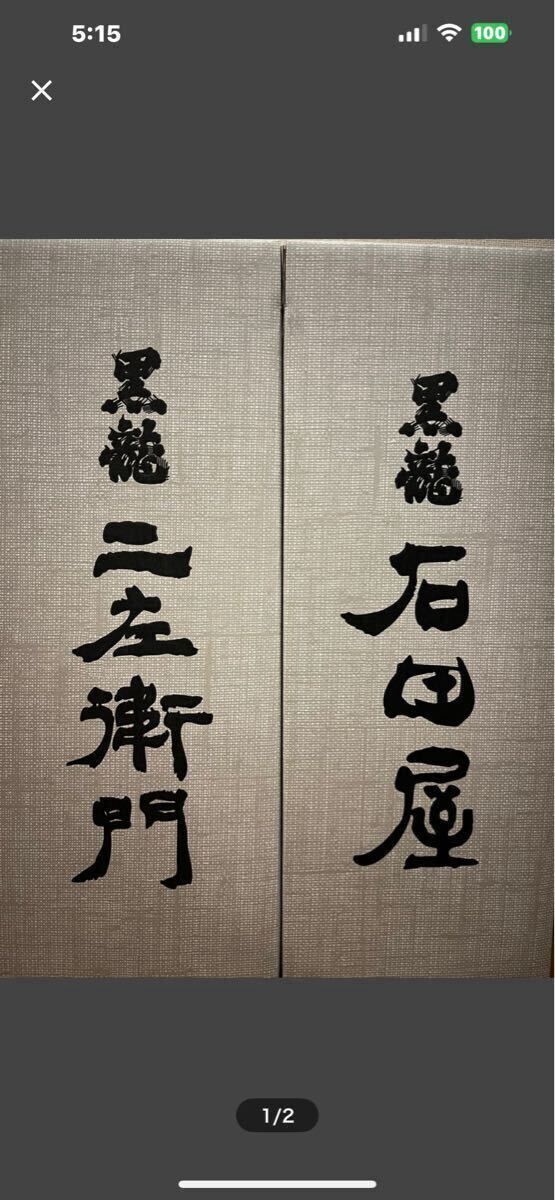 5:15
100
黒龍
石田屋
黒龍
二左衛門
1/2